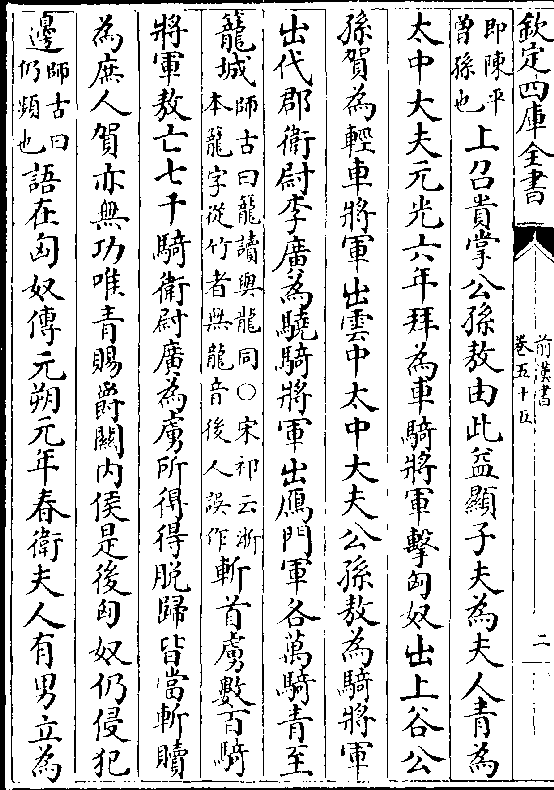 欽定四庫全書
前漢書
卷五十五
二
即陳平
曽孫也
上召貴掌公孫敖由此益顯子夫為夫人青為
太中大夫元光六年拜為車騎將軍擊匈奴出上谷公
孫賀為輕車將軍出雲中太中大夫公孫敖為騎將軍
出代郡衛尉李廣為驍騎將軍出鴈門軍各萬騎青至
龍城
師古曰籠讀與龍同○宋祁云浙
本龍字從竹者無龍音後人誤作
斬首虜數百騎
將軍敖亡七千騎衛尉廣為虜所得得脱歸皆當斬贖
為庶人賀亦無功唯青賜爵關内侯是後匈奴仍侵犯
邊
師古曰
仍頻也
語在匈奴傳元朔元年春衛夫人有男立為